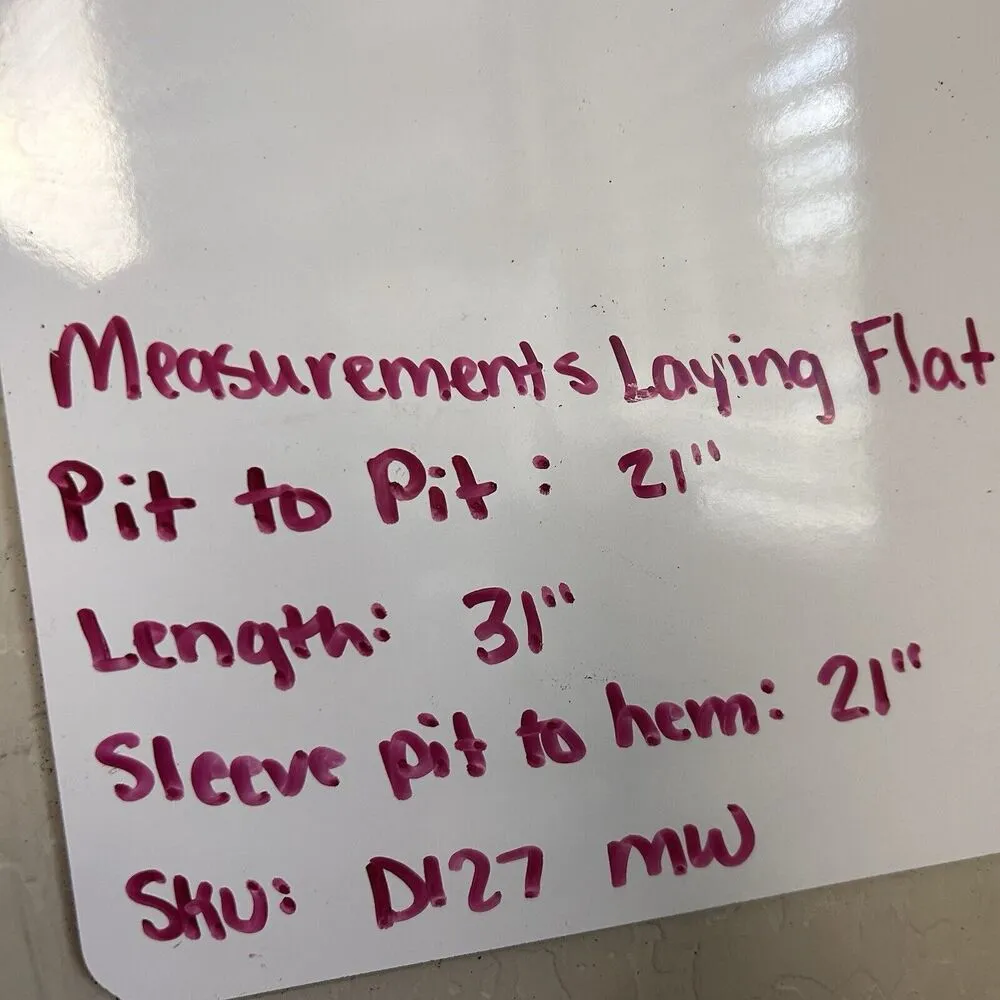 Measurements Laying Flat
Pit to Pit: 21"
Length: 31"
Sleeve pit to hem: 21"
SKU: D127 MW